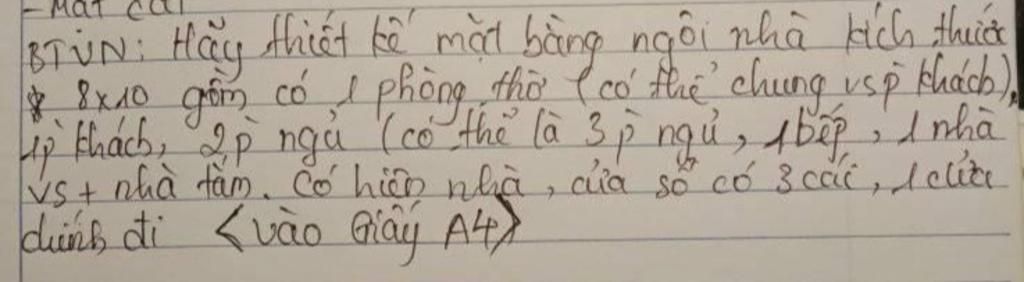 - Mặt cắt
BTVN: Hãy thiết kế mặt bằng ngôi nhà kích thước
8x10 gồm có 1 phòng thờ (có thể chung vs p khách),
1p khách, 2p ngủ (có thể là 3 p ngủ, 1 bếp, 1 nhà
vs + nhà tắm. Có hiên nhà, cửa sổ có 3 cái, 1 cửa
chính đi <vào Giấy A4>